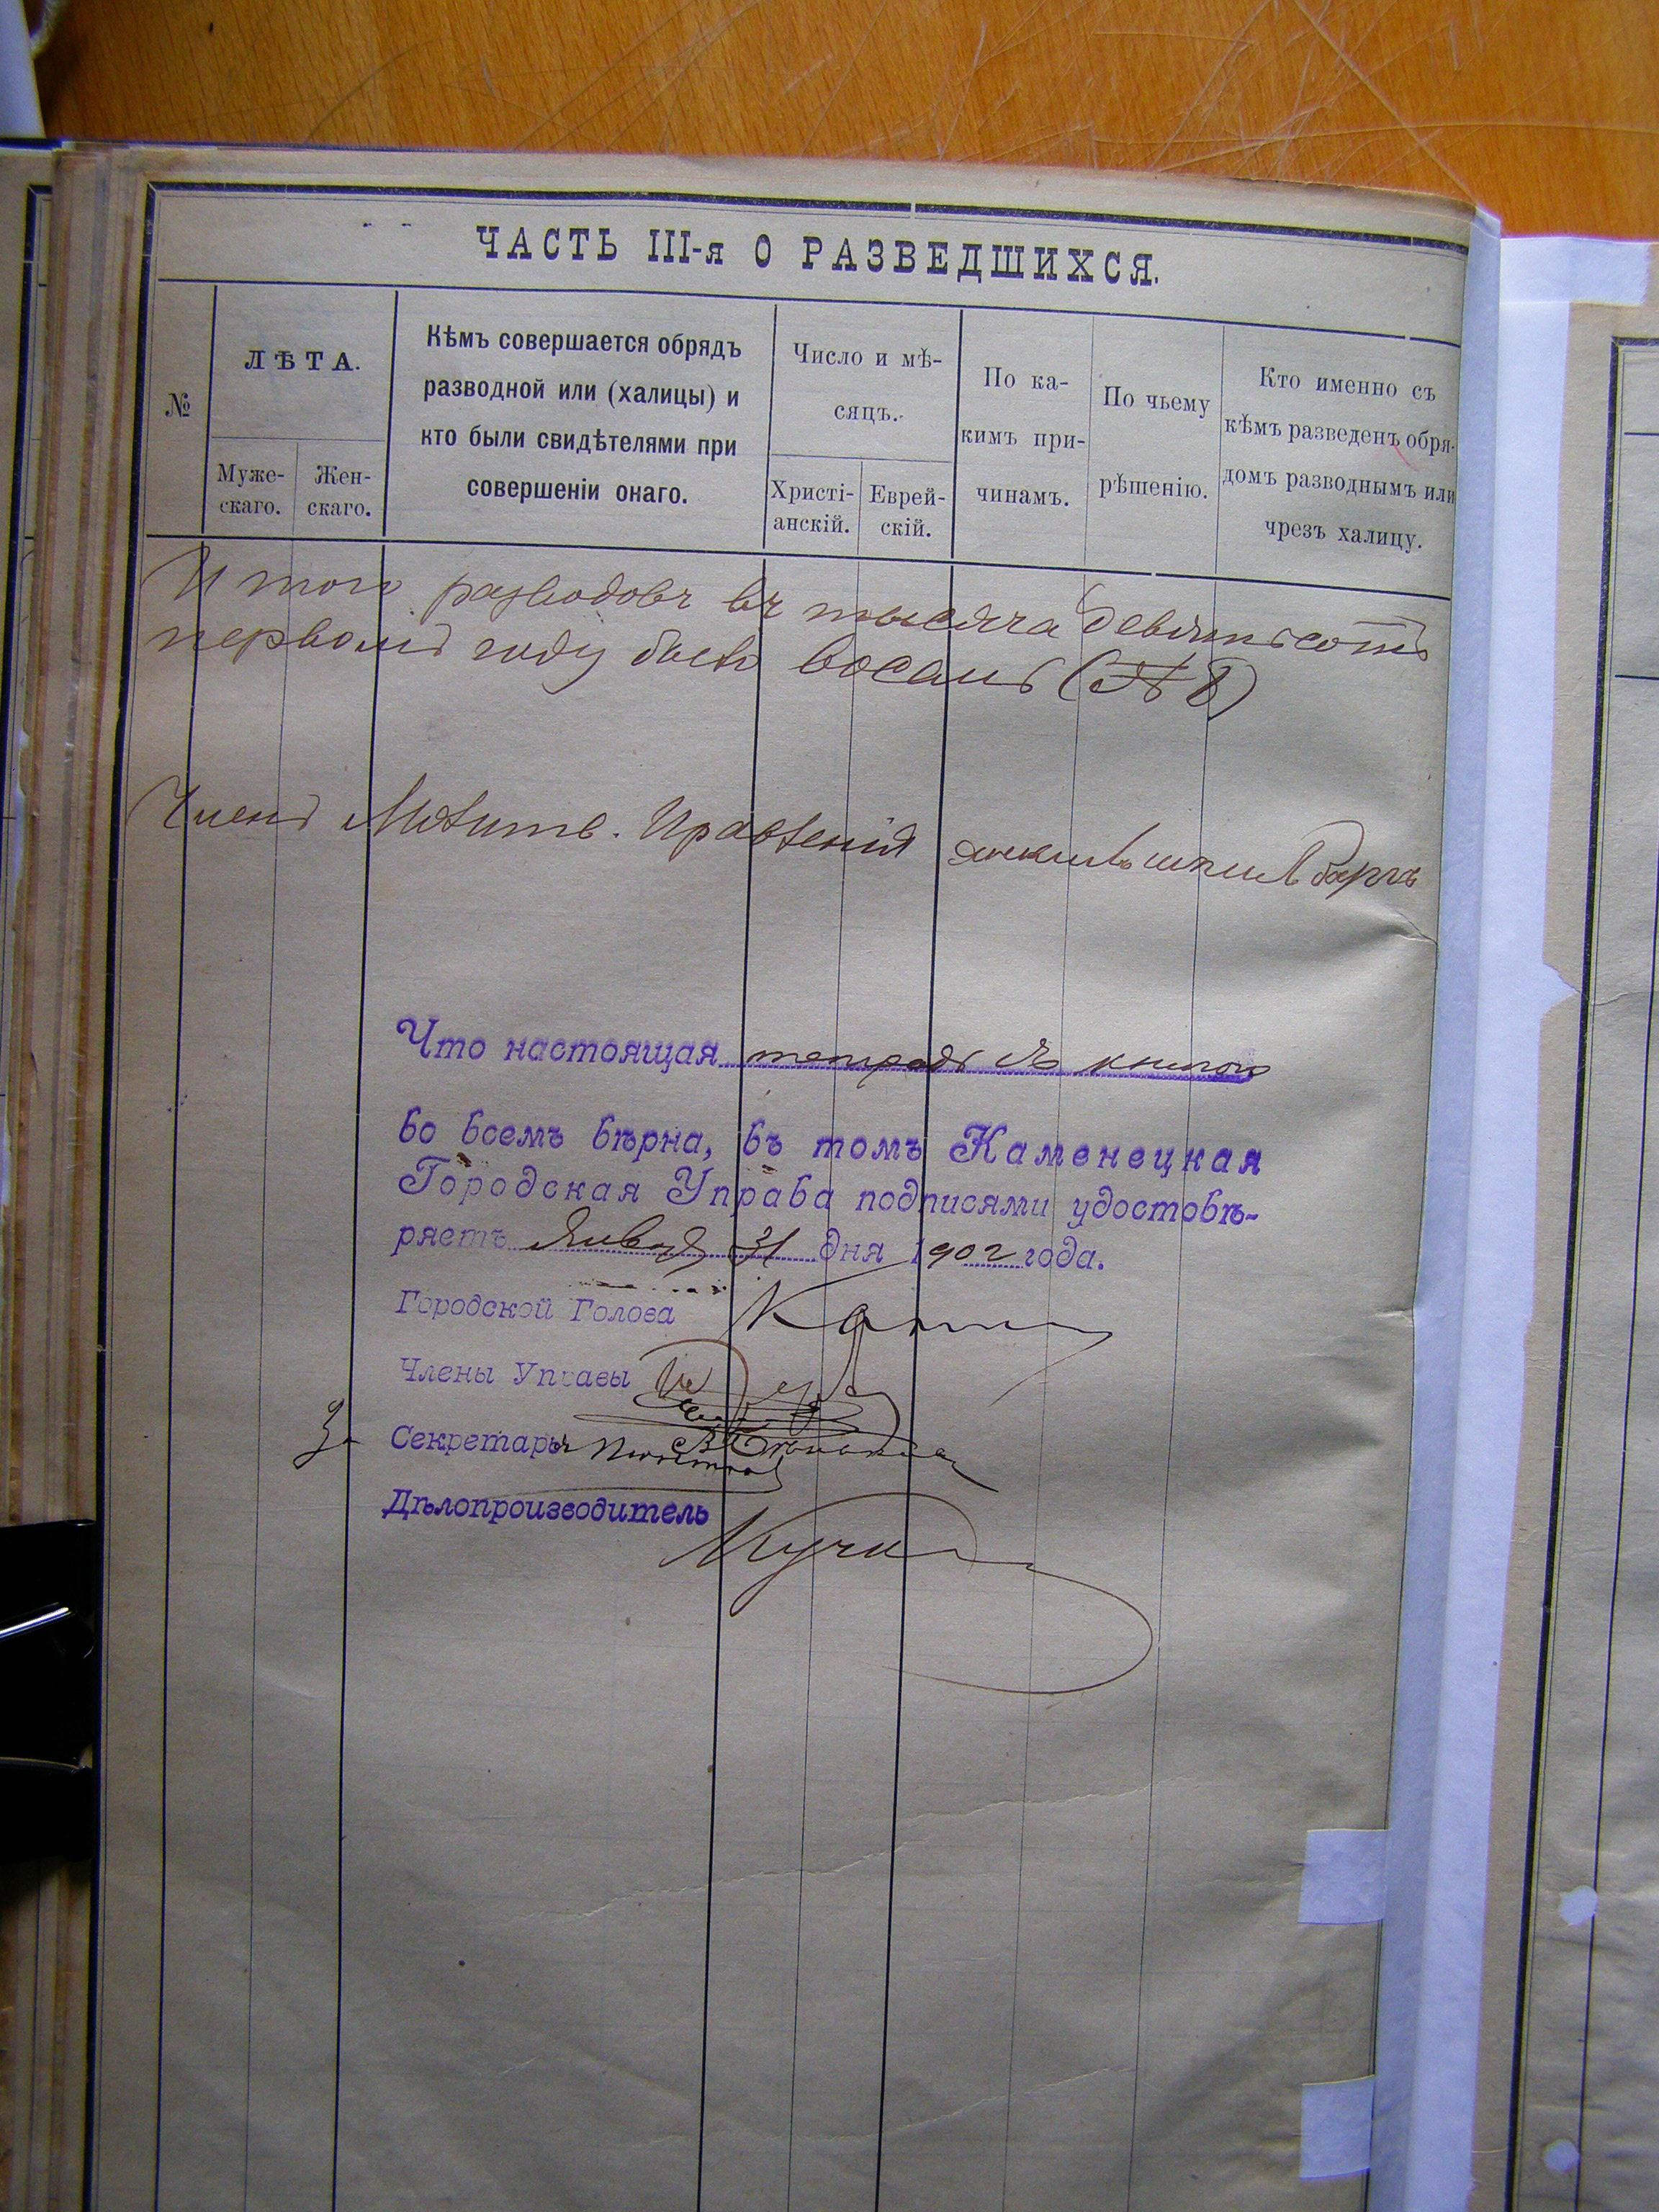 ЧАСТЬ III-я О РАЗВЕДШИХСЯ.
№
ЛѢТА.
Муже-
скаго.
Жен-
скаго.
Кѣмъ совершается обрядъ
разводной или (халицы) и
кто были свидѣтелями при
совершеніи онаго.
Число и мѣ-
сяцъ.
Христі-
анскій.
Еврей-
скій.
По ка-
кимъ при-
чинамъ.
По чьему
рѣшенію.
Кто именно съ
кѣмъ разведенъ обря-
домъ разводнымъ или
чрезъ халицу.
Итого разводовъ въ тысяча девятьсотъ
первомъ году было восемь (№ 8)
Членъ Молитв. Правленія
Что настоящая тетрадь съ книгою
во всемъ вѣрна, въ томъ Каменецкая
Городская Управа подписями удостовѣ-
ряетъ Января 31 дня 1902 года.
Городской Голова
Члены Управы
За Секретаря
Дѣлопроизводитель